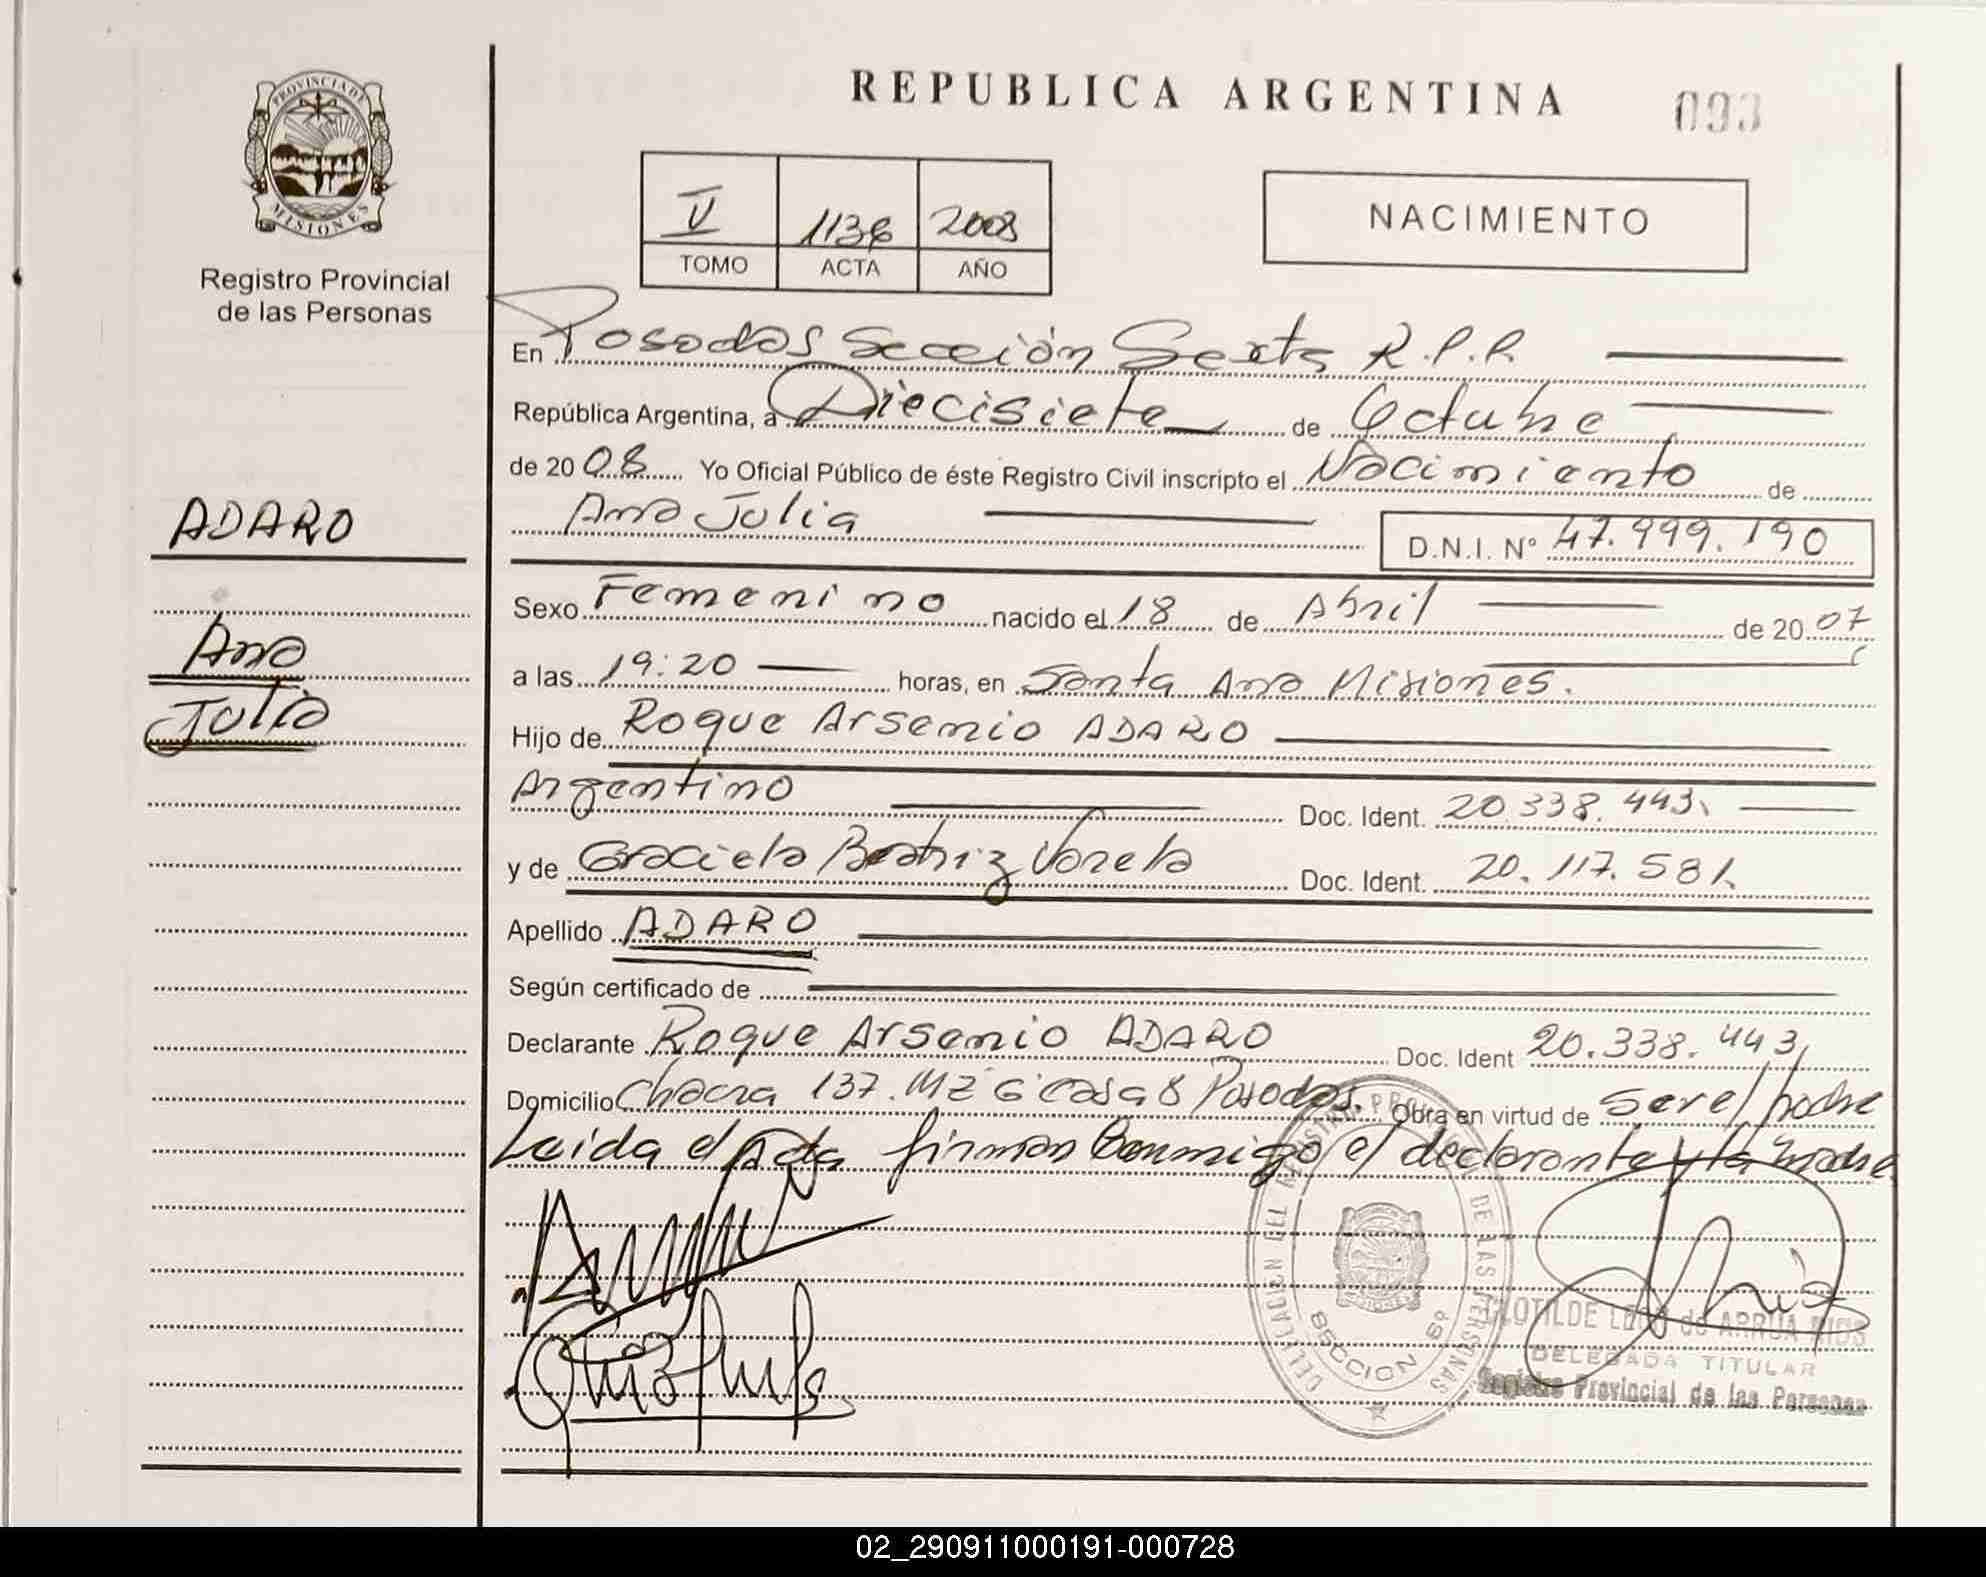 REPUBLICA ARGENTINA
093
PROVINCIA DE MISIONES
Registro Provincial
de las Personas
V 1136 2008
TOMO ACTA AÑO
NACIMIENTO
En Posadas Sección Sexta R.P.P.
República Argentina, a Diecisiete de Octubre
de 20 08 Yo Oficial Público de éste Registro Civil inscripto el Nacimiento de
Ana Julia D.N.I. Nº 47.999.190
ADARO
Ana
Julia
Sexo Femenino nacido el 18 de Abril de 20 07
a las 19:20 horas, en Santa Ana Misiones.
Hijo de Roque Arsenio ADARO
Argentino Doc. Ident. 20.338.443.
y de Graciela Beatriz Varela Doc. Ident. 20.117.581.
Apellido ADARO
Según certificado de
Declarante Roque Arsenio ADARO Doc. Ident 20.338.443,
Domicilio Chacra 137. MZ G casa 8 Posadas. Obra en virtud de ser el padre
Leida el Acta firman Conmigo el declarante y la madre
DELEGACION DEL REGISTRO PROVINCIAL DE LAS PERSONAS
SECCION 6º
CLOTILDE de ARRUA RIOS
DELEGADA TITULAR
Registro Provincial de las Personas
02_290911000191-000728